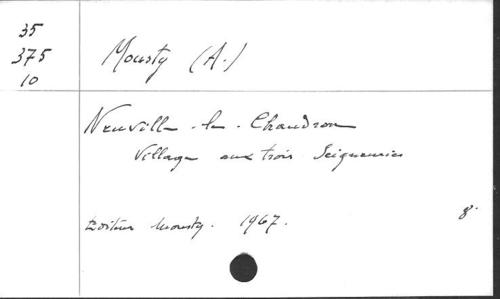 35
375
10
Mousty (A.)
Neuville-le-Chaudron
Village aux trois Seigneuries
Editeur Mousty. 1967.
8°